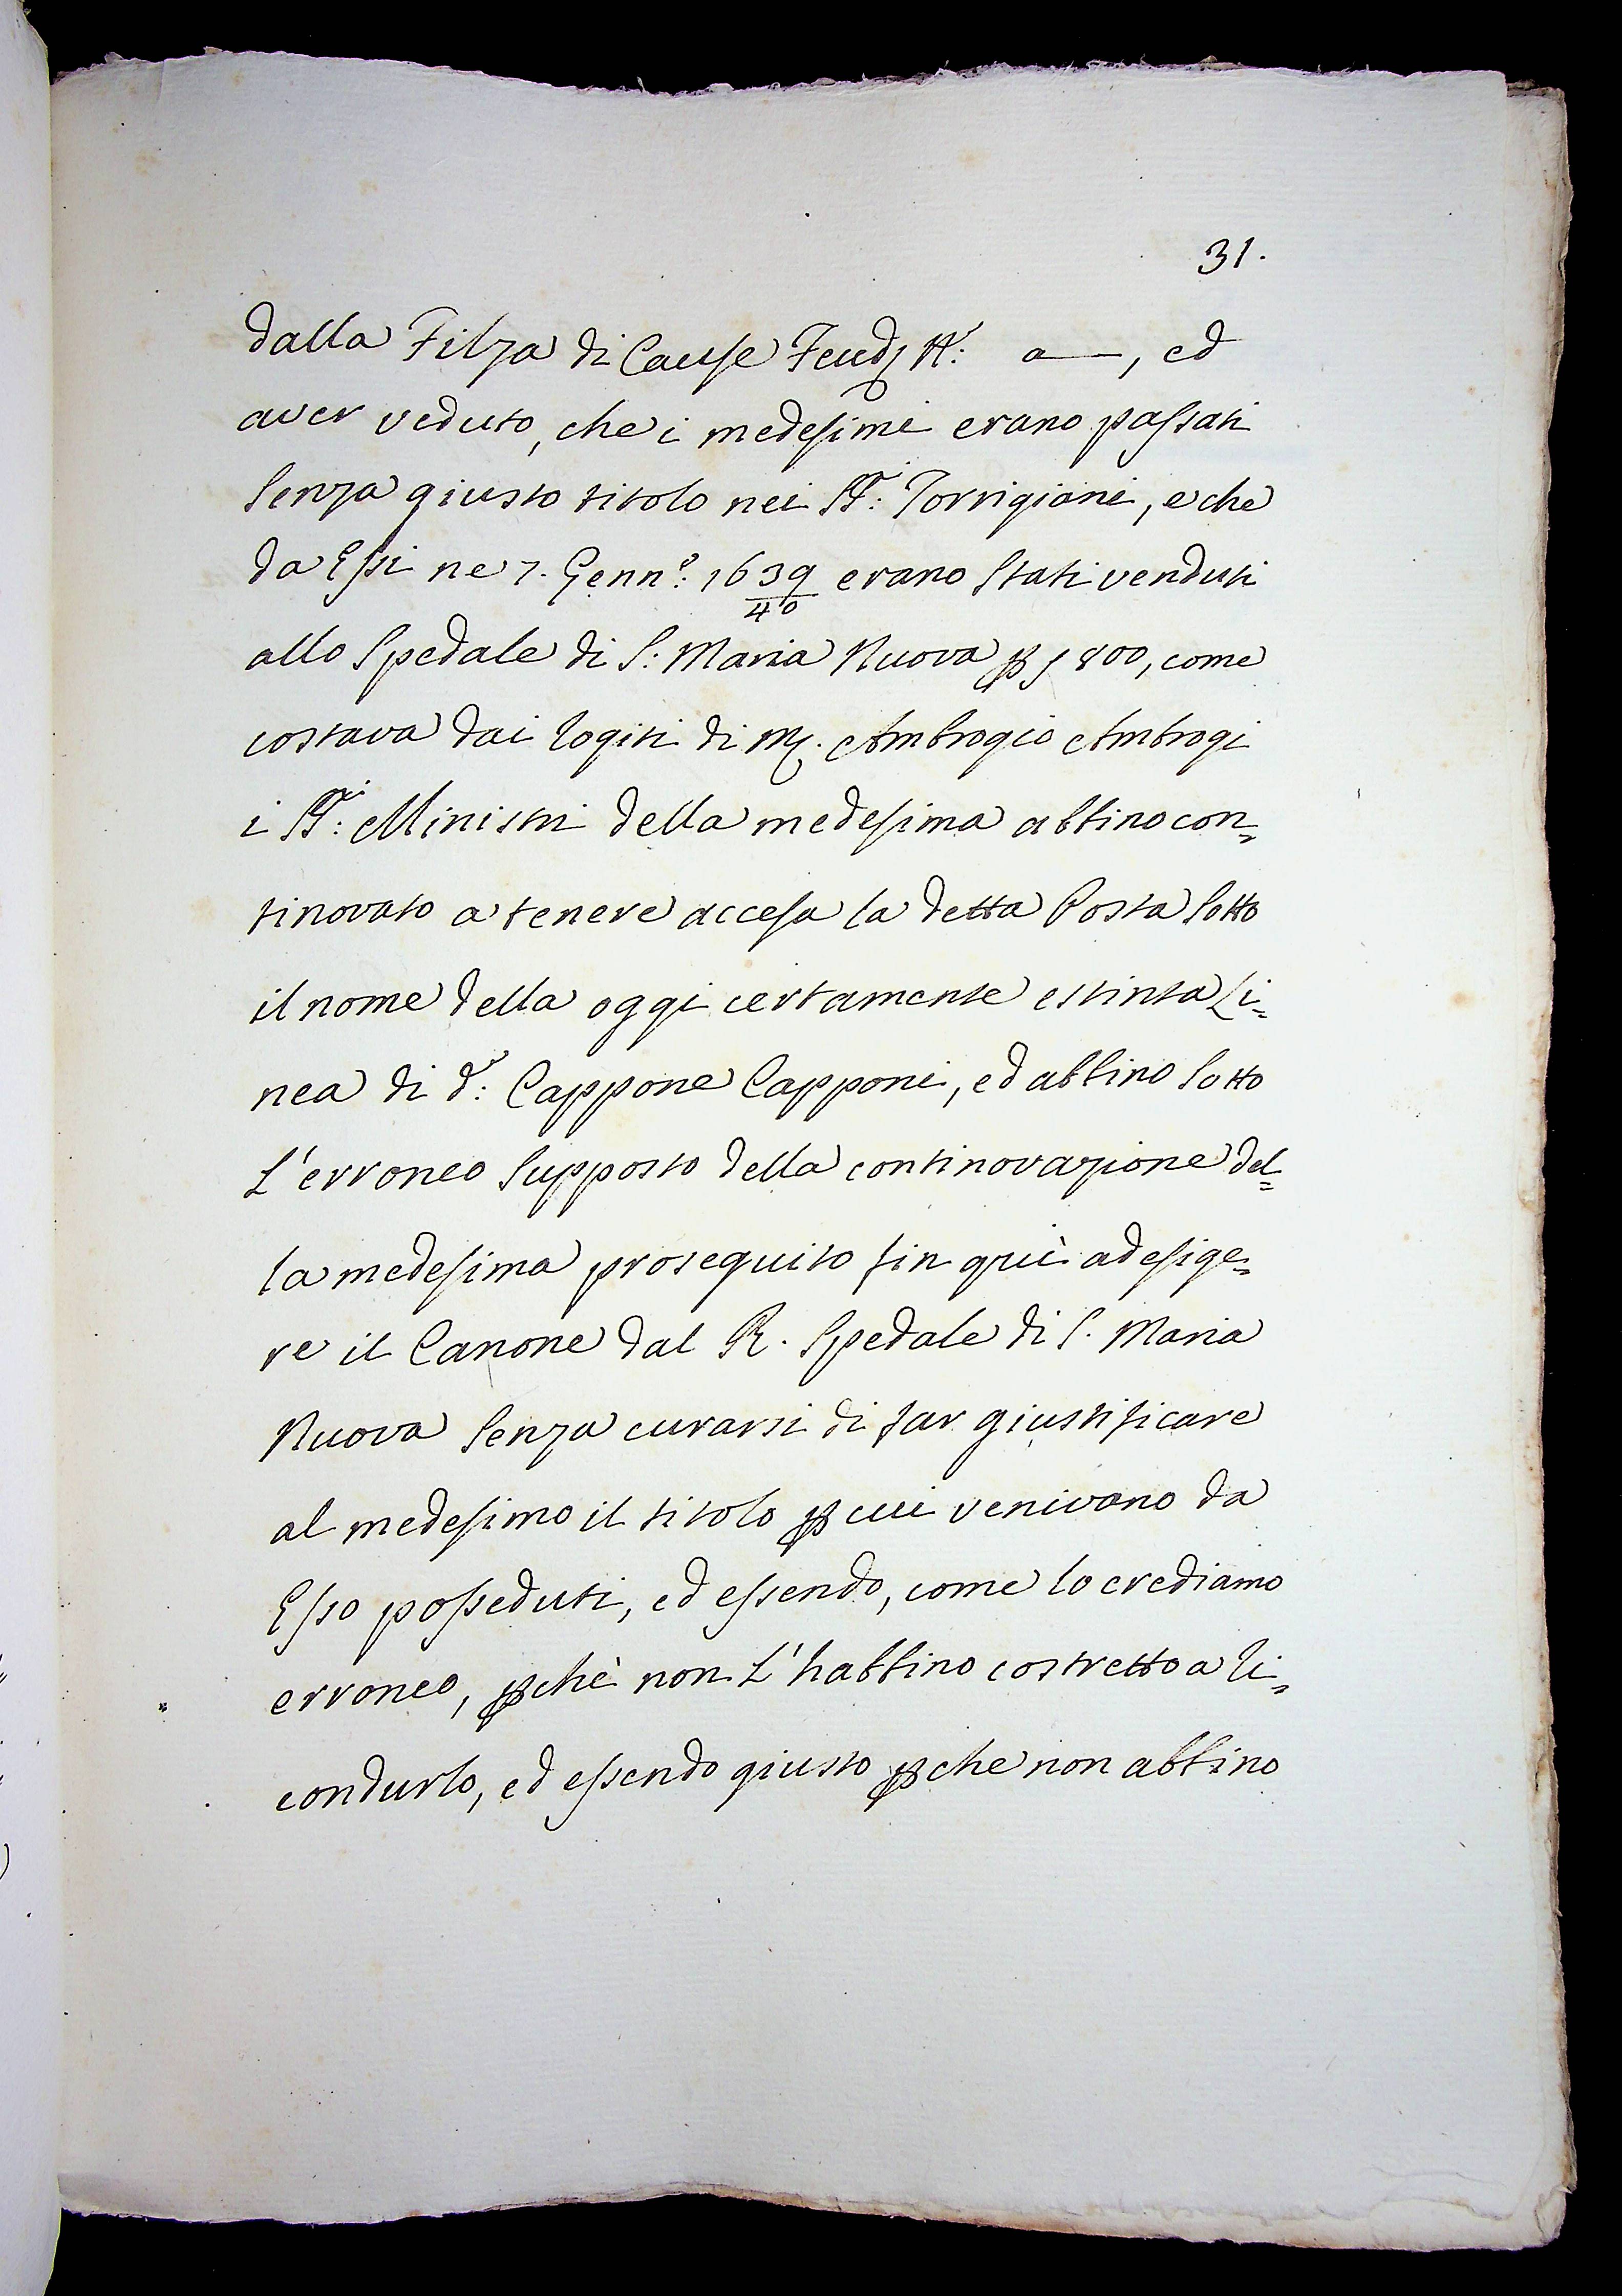 31.
dalla Filza di Cause Feud. N.: a—, ed
aver veduto, che i medesimi erano passati
senza giusto titolo nei SS.ri: Torrigiani, e che
da Essi ne 7. Genn.o: 1639/40 erano stati venduti
allo Spedale di S: Maria Nuova p 800, come
costava dai rogiti di M. Ambrogio Ambrogi
i SS.ri: Ministri della medesima abbino con=
tinovato a tenere accesa la detta Posta sotto
il nome della oggi certamente estinta Li=
nea di d.o: Cappone Capponi, ed abbino sotto
L'erroneo supposto della continovazione del=
la medesima proseguito fin quì ad esige=
re il Canone dal R. Spedale di S. Maria
Nuova senza curarsi di far giustificare
al medesimo il titolo p cui venivano da
Esso posseduti, ed essendo, come lo crediamo
erroneo, pchè non L'habbino costretto a ri=
condurlo, ed essendo giusto pche non abbino